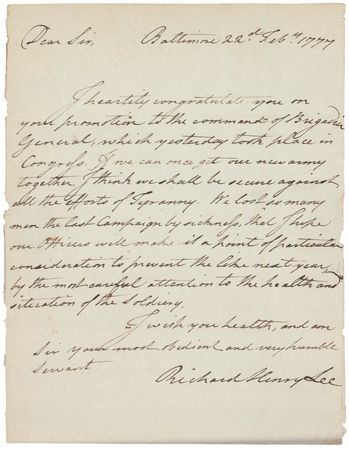 Dear Sir, Baltimore 22d. Feby. 1777
I heartily congratulate you on
your promotion to the command of Brigadier
General, which yesterday took place in
Congress. If we can once get our new army
together I think we shall be secure against
all the efforts of Tyranny. We lost so many
men the last Campaign by sickness, that I hope
our Officers will make it a point of particular
consideration to prevent the like next year,
by the most careful attention to the health and
situation of the Soldiery.
I wish you health, and am
Sir your most obedient and very humble
Servant
Richard Henry Lee